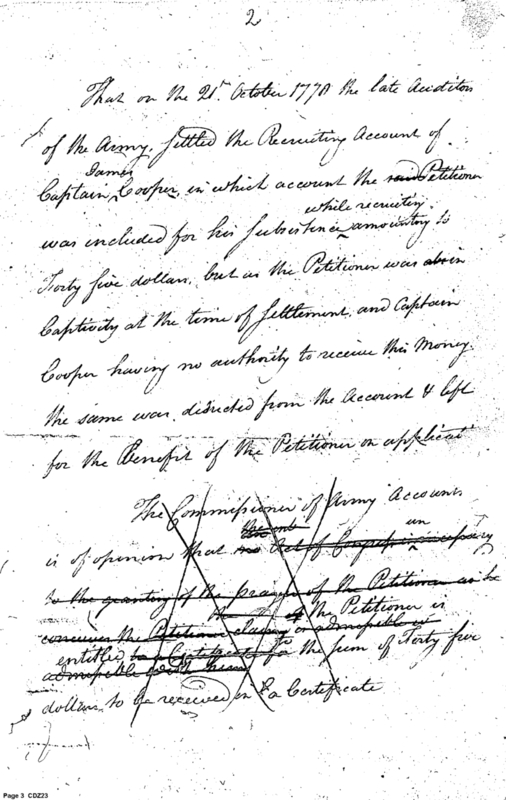 2
That on the 21st October 1778 the late Auditors
of the Army, settled the Recruiting Account of
James
Captain Cooper, in which account the said Petitioner
while recruiting
was included for his subsistence amounting to
Forty five dollars, but as the Petitioner was
Captivity at the time of settlement, and Captain
Cooper having no authority to receive this Money.
the same was deducted from the Account & left
for the Benefit of the Petitioner on applicati
The Commissioner of Army Accounts
un
is of opinion that no Act of Congress is necessary
to the granting of the prayer of the Petitioner as he
the Petitioner is
conceives the Petitioners claim admissible
entitled to a Certificate for the sum of Forty five
admissible with
dollars to be received in a Certificate
Page 3 CDZ23